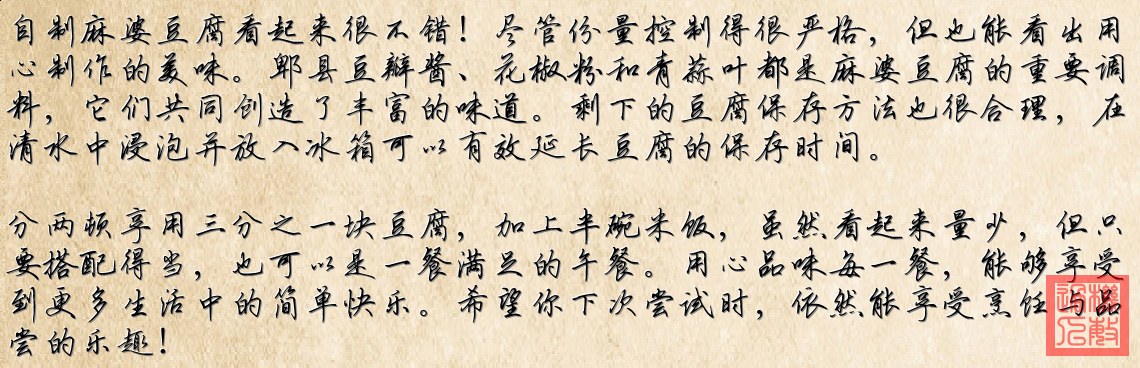 自制麻婆豆腐看起来很不错！尽管份量控制得很严格，但也能看出用
心制作的美味。郫县豆瓣酱、花椒粉和青蒜叶都是麻婆豆腐的重要调
料，它们共同创造了丰富的味道。剩下的豆腐保存方法也很合理，在
清水中浸泡并放入冰箱可以有效延长豆腐的保存时间。
分两顿享用三分之一块豆腐，加上半碗米饭，虽然看起来量少，但只
要搭配得当，也可以是一餐满足的午餐。用心品味每一餐，能够享受
到更多生活中的简单快乐。希望你下次尝试时，依然能享受烹饪与品
尝的乐趣！